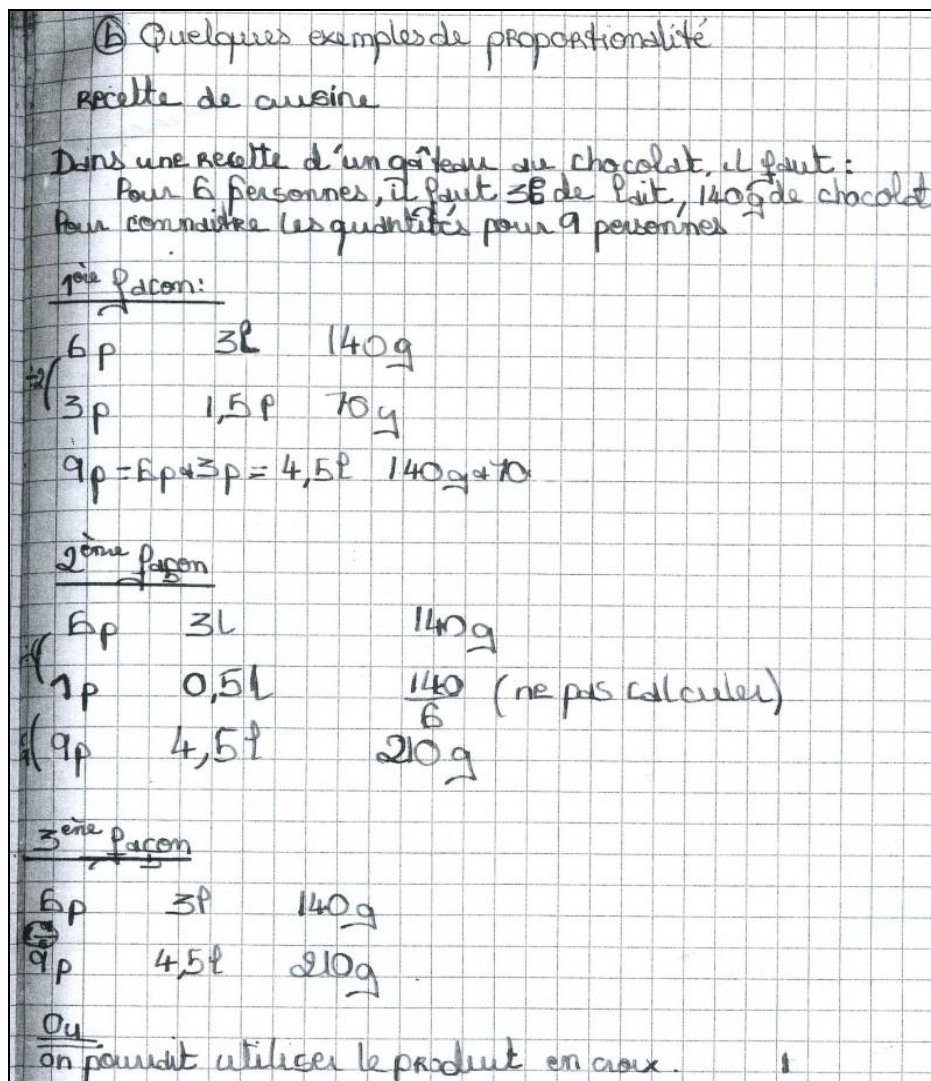 ⓑ Quelques exemples de proportionalité
Recette de cuisine
Dans une recette d'un gâteau au chocolat, il faut :
Pour 6 personnes, il faut 3l de lait, 140g de chocolat
Pour connaitre les quantités pour 9 personnes
1ère façon:
6p 3l 140g
÷2
3p 1,5l 70g
9p = 6p+3p = 4,5l 140g+70
2ème façon
6p 3L 140g
1p 0,5l 140/6 (ne pas calculer)
9p 4,5l 210g
3ème façon
6p 3l 140g
9p 4,5l 210g
Ou
on pourrait utiliser le produit en croix.